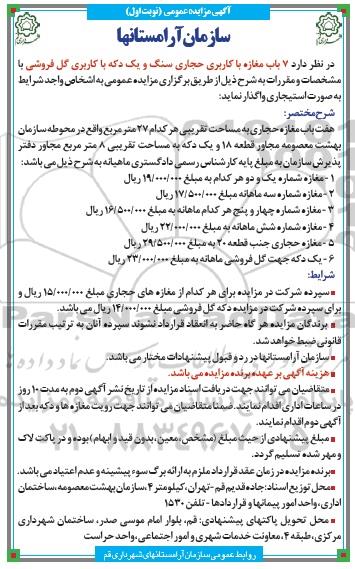 آگهی مزایده عمومی (نوبت اول)
سازمان آرامستانها
در نظر دارد ۷ باب مغازه با کاربری حجاری سنگ و یک دکه با کاربری گل فروشی با
مشخصات و مقررات به شرح ذیل از طریق برگزاری مزایده عمومی به اشخاص واجد شرایط
به صورت استیجاری واگذار نماید:
شرح مختصر:
هفت باب مغازه حجاری به مساحت تقریبی هر کدام ۲۷ متر مربع واقع در محوطه سازمان
بهشت معصومه مجاور قطعه ۱۸ و یک دکه به مساحت تقریبی ۸ متر مربع مجاور دفتر
پذیرش سازمان به مبلغ پایه کارشناس رسمی دادگستری ماهیانه به شرح ذیل می باشد:
۱- مغازه شماره یک و دو هر کدام به مبلغ ۱۹/۰۰۰/۰۰۰ ریال
۲- مغازه شماره سه ماهانه به مبلغ ۱۷/۵۰۰/۰۰۰ ریال
۳- مغازه شماره چهار و پنج هر کدام ماهانه به مبلغ ۱۶/۵۰۰/۰۰۰ ریال
۴- مغازه شماره شش ماهانه به مبلغ ۲۲/۰۰۰/۰۰۰ ریال
۵- مغازه حجاری جنب قطعه ۲۰ به مبلغ ۲۹/۵۰۰/۰۰۰ ریال
۶- یک دکه جهت گل فروشی ماهانه به مبلغ ۲۳/۰۰۰/۰۰۰ ریال
شرایط:
سپرده شرکت در مزایده برای هر کدام از مغازه های حجاری مبلغ ۱۵/۰۰۰/۰۰۰ ریال و
برای سپرده شرکت در مزایده دکه گل فروشی مبلغ ۱۴/۰۰۰/۰۰۰ ریال می باشد.
برندگان مزایده هر گاه حاضر به انعقاد قرارداد نشوند سپرده آنان به ترتیب مقررات
قانونی ضبط خواهد شد.
سازمان آرامستانها در رد و قبول پیشنهادات مختار می باشد.
هزینه آگهی بر عهده برنده مزایده می باشد.
متقاضیان می توانند جهت دریافت اسناد مزایده از تاریخ نشر آگهی دوم به مدت ۱۰ روز
در ساعات اداری اقدام نمایند. ضمنا متقاضیان می توانند جهت رویت مغازه ها و دکه بعد از
آگهی دوم اقدام نمایند.
مبلغ پیشنهادی از حیث مبلغ (مشخص، معین، بدون قید و ابهام) بوده و در پاکت لاک
و مهر شده تسلیم گردد.
برنده مزایده در زمان عقد قرارداد ملزم به ارائه برگ سوء پیشینه و عدم اعتیاد می باشد.
محل توزیع اسناد: جاده قدیم قم - تهران، کیلومتر ۴، سازمان بهشت معصومه، ساختمان
اداری، واحد امور پیمانها و قراردادها - تلفن ۱۵۳۰
محل تحویل پاکتهای پیشنهادی: قم، بلوار امام موسی صدر، ساختمان شهرداری
مرکزی، طبقه ۴، معاونت خدمات شهری و امور اجتماعی، واحد حراست
روابط عمومی سازمان آرامستانهای شهرداری قم